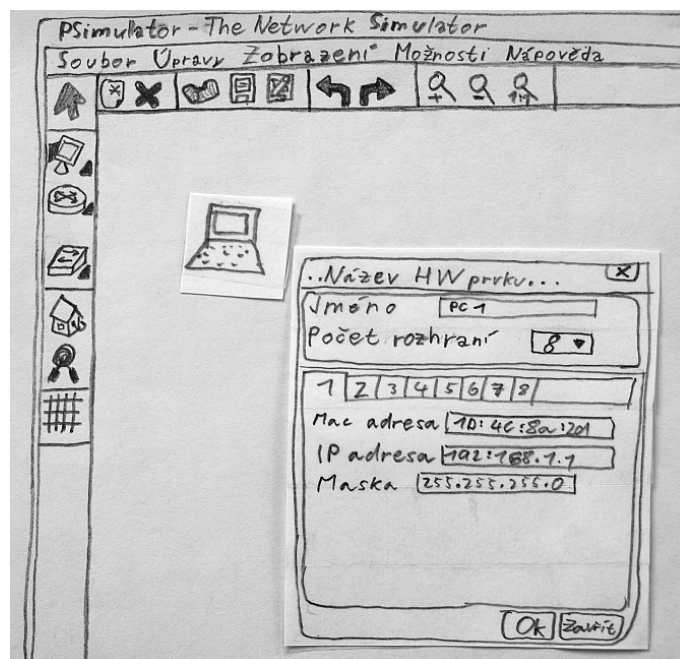 PSimulator - The Network Simulator
Soubor Úpravy Zobrazení Možnosti Nápověda
1:1
..Název HW prvku... X
Jméno PC 1
Počet rozhraní 8
1 2 3 4 5 6 7 8
Mac adresa 1D:4C:8a:2d
IP adresa 192:168.1.1
Maska 255.255.255.0
Ok Zavřít